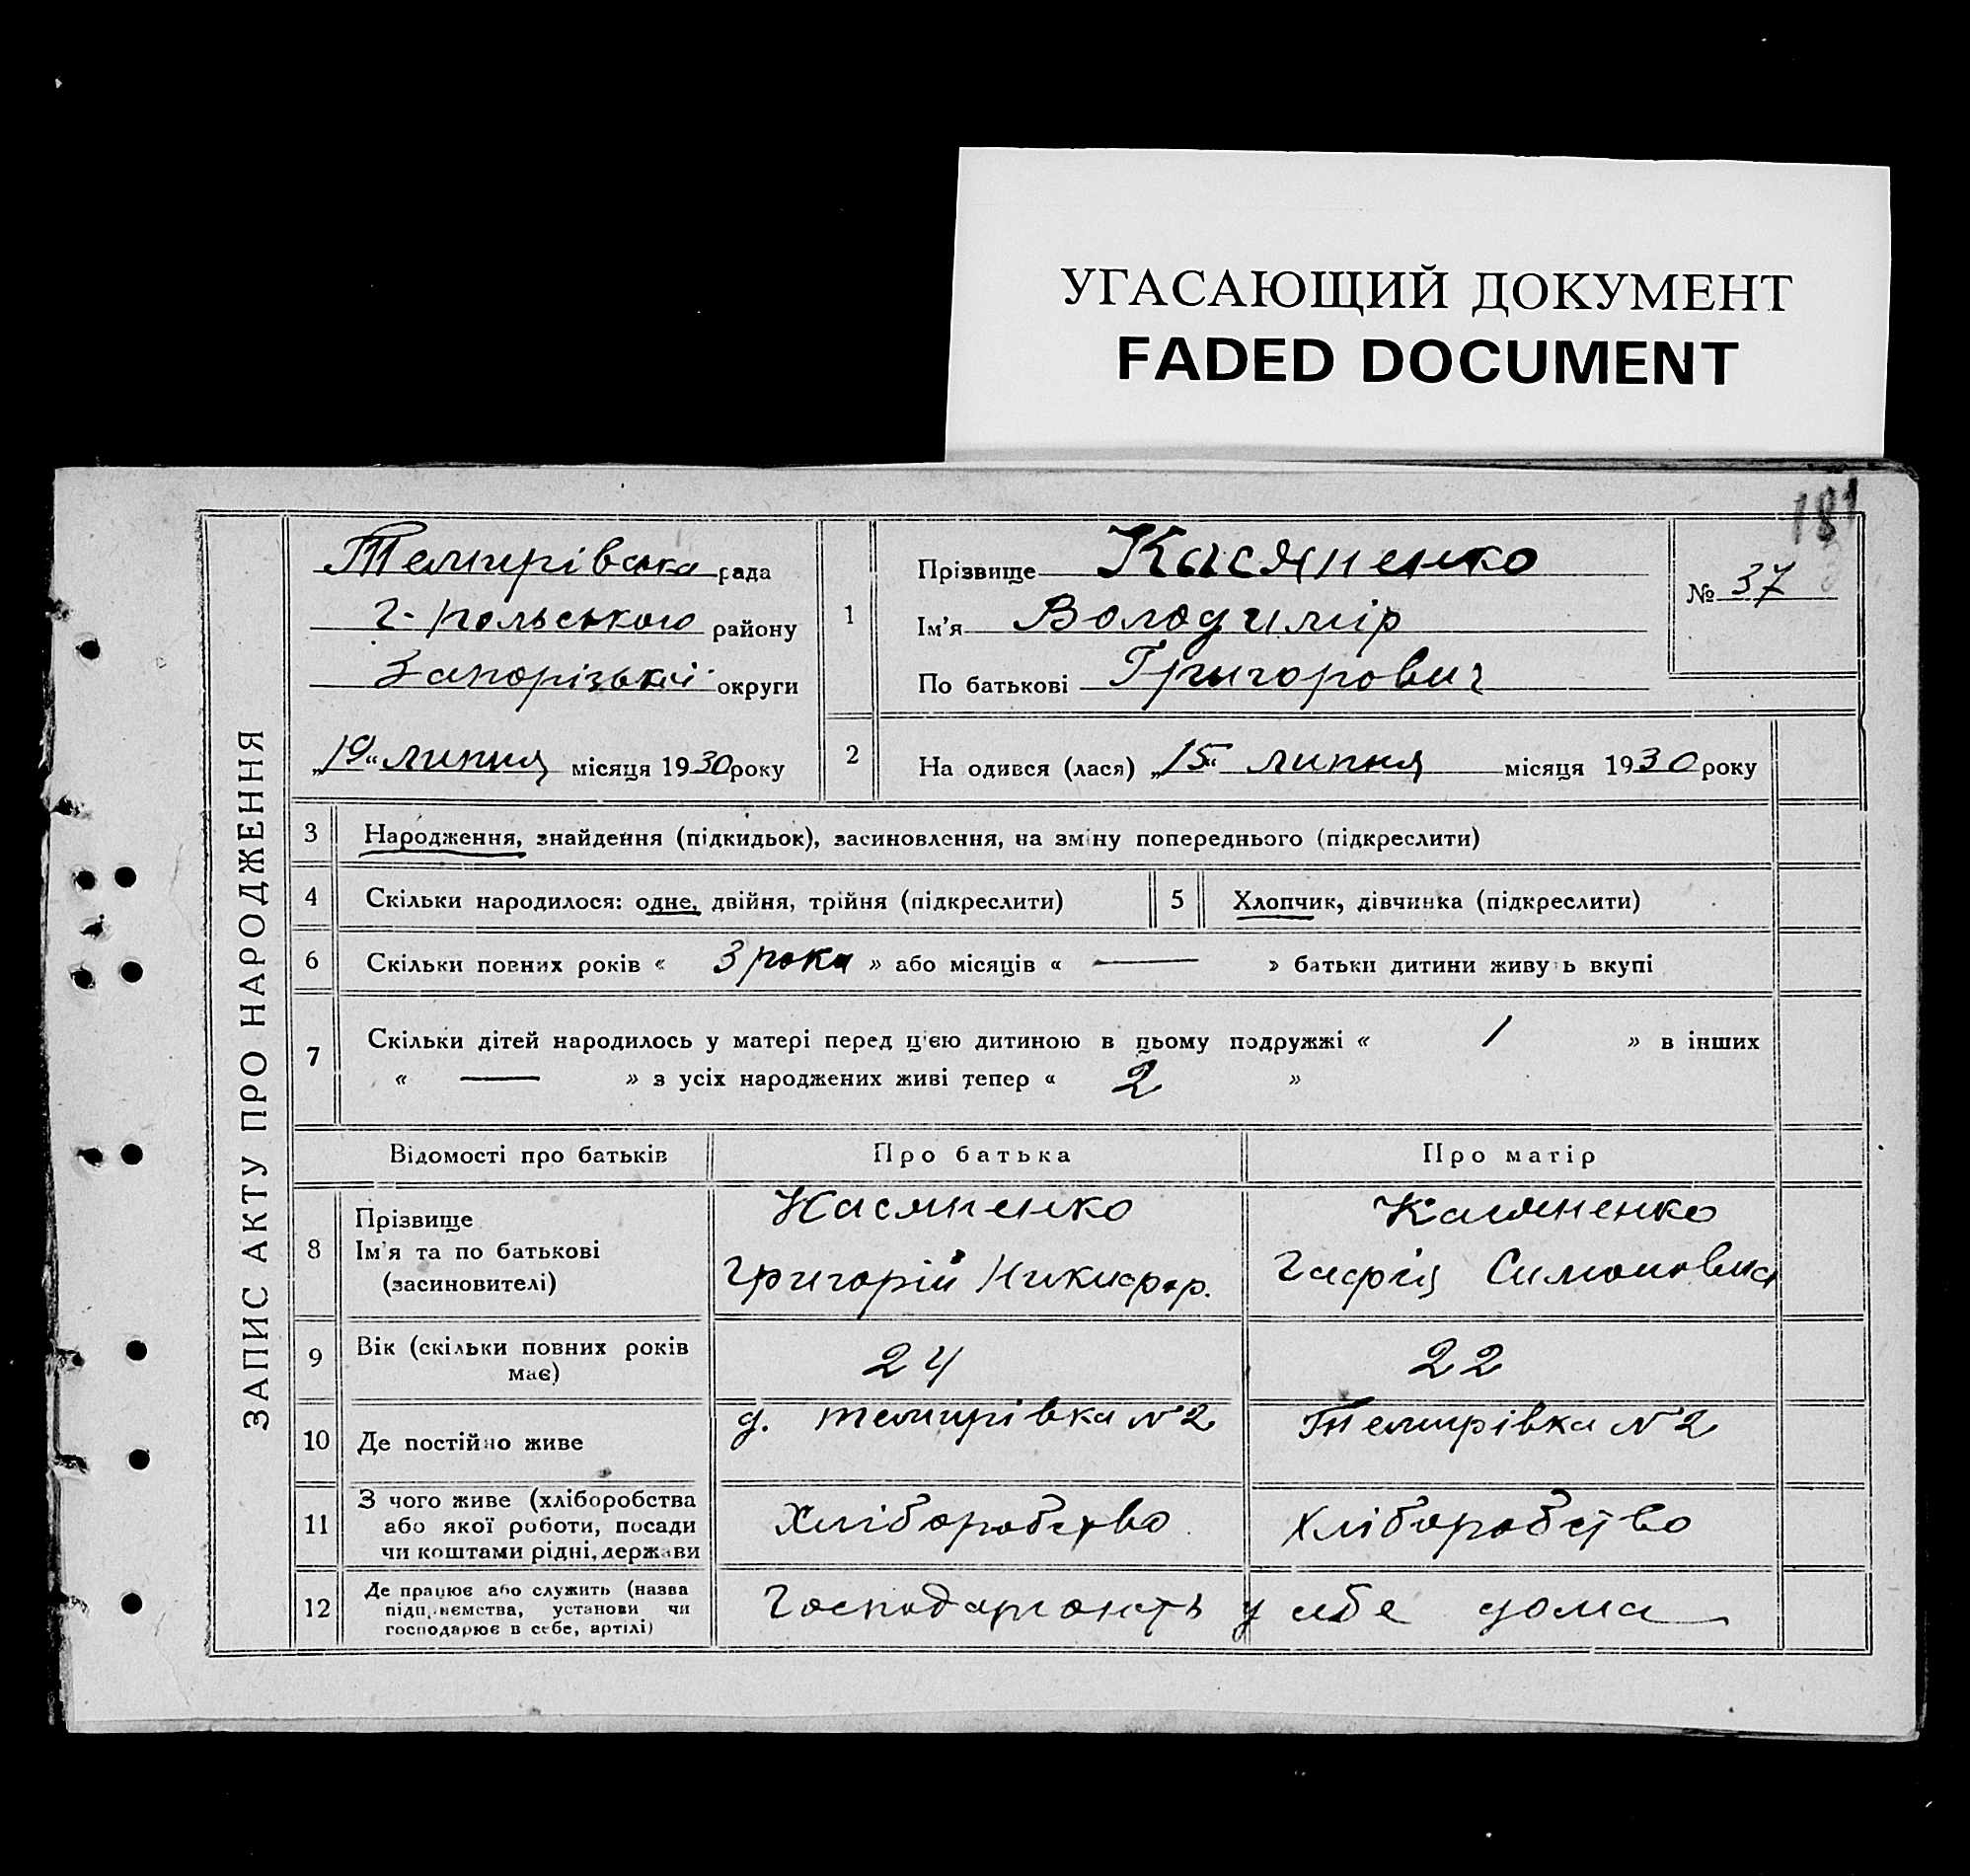 УГАСАЮЩИЙ ДОКУМЕНТ
FADED DOCUMENT
181
ЗАПИС АКТУ ПРО НАРОДЖЕННЯ
Темирівська рада
Г-Польського району
Запорізької округи
„19“ липня місяця 1930 року
1
Прізвище Касяненко
Ім’я Володимір
По батькові Григорович
№ 37
2
На одився (лася) „15“ липня місяця 1930 року
3 Народження, знайдення (підкидьок), засиновлення, на зміну попереднього (підкреслити)
4 Скільки народилося: одне, двійня, трійня (підкреслити)
5 Хлопчик, дівчинка (підкреслити)
6 Скільки повних років « 3 рока » або місяців « — » батьки дитини живуть вкупі
7 Скільки дітей народилось у матері перед ц'єю дитиною в цьому подружжі « 1 » в інших
« — » з усіх народжених живі тепер « 2 »
Відомості про батьків Про батька Про матір
8
Прізвище
Ім’я та по батькові
(засиновителі)
Касяненко
Григорій Никифор.
Касяненко
Гафія Симоновна
9
Вік (скільки повних років
має)
24
22
10 Де постійно живе
д. Темирівка №2
Темирівка №2
11
З чого живе (хліборобства
або якої роботи, посади
чи коштами рідні, держави
Хліборобство
Хліборобство
12
Де працює або служить (назва
підприємства, установи чи
господарює в себе, артілі)
Господарюють у себе дома